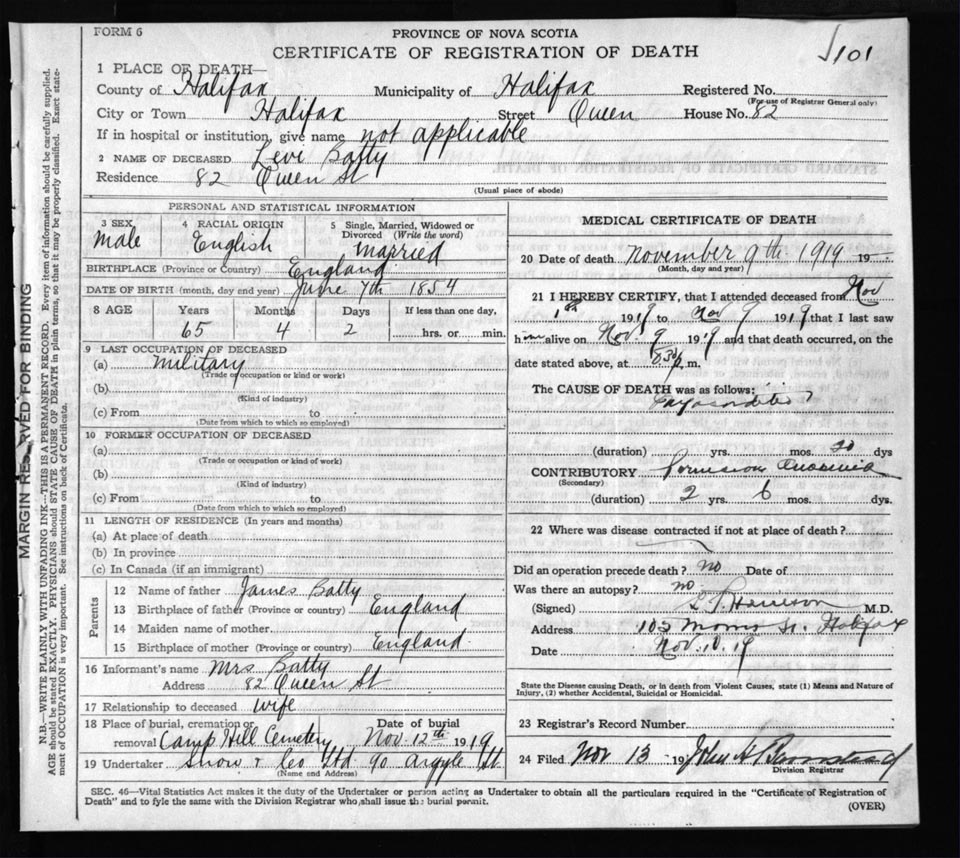 FORM 6
PROVINCE OF NOVA SCOTIA
CERTIFICATE OF REGISTRATION OF DEATH
101
1 PLACE OF DEATH—
County of Halifax Municipality of Halifax Registered No.
(For use of Registrar General only)
City or Town Halifax Street Queen House No. 82
If in hospital or institution, give name not applicable
2 NAME OF DECEASED Levi Batty
Residence 82 Queen St
(Usual place of abode)
PERSONAL AND STATISTICAL INFORMATION
3 SEX 4 RACIAL ORIGIN 5 Single, Married, Widowed or Divorced (Write the word)
Male English Married
BIRTHPLACE (Province or Country) England
DATE OF BIRTH (month, day and year) June 7th 1854
8 AGE Years Months Days If less than one day,
65 4 2 hrs. or min.
9 LAST OCCUPATION OF DECEASED
(a) Military
(Trade or occupation or kind of work)
(b)
(Kind of industry)
(c) From to
(Date from which to which so employed)
10 FORMER OCCUPATION OF DECEASED
(a)
(Trade or occupation or kind of work)
(b)
(Kind of industry)
(c) From to
(Date from which to which so employed)
11 LENGTH OF RESIDENCE (In years and months)
(a) At place of death
(b) In province
(c) In Canada (if an immigrant)
Parents
12 Name of father James Batty
13 Birthplace of father (Province or country) England
14 Maiden name of mother
15 Birthplace of mother (Province or country) England
16 Informant's name Mrs Batty
Address 82 Queen St
17 Relationship to deceased wife
18 Place of burial, cremation or removal Camp Hill Cemetery Date of burial Nov. 12th 1919
19 Undertaker Snow & Co Ltd 90 Argyle St
(Name and Address)
MEDICAL CERTIFICATE OF DEATH
20 Date of death November 9th 1919 19
(Month, day and year)
21 I HEREBY CERTIFY, that I attended deceased from Nov
1st 1919 to Nov 9 1919 that I last saw
him alive on Nov. 9 1919 and that death occurred, on the
date stated above, at 8.30 p.m.
The CAUSE OF DEATH was as follows:
(duration) yrs. mos. dys
CONTRIBUTORY Pernicious Anaemia
(Secondary)
(duration) 2 yrs. 6 mos. dys.
22 Where was disease contracted if not at place of death?
Did an operation precede death? no Date of
Was there an autopsy? no
(Signed) M.D.
Address 103 Morris St. Halifax
Date Nov. 10. 19
State the Disease causing Death, or in death from Violent Causes, state (1) Means and Nature of Injury, (2) whether Accidental, Suicidal or Homicidal.
23 Registrar's Record Number
24 Filed Nov 13 19 John H Barnstead
Division Registrar
SEC. 46—Vital Statistics Act makes it the duty of the Undertaker or person acting as Undertaker to obtain all the particulars required in the "Certificate of Registration of
Death" and to fyle the same with the Division Registrar who shall issue the burial permit.
(OVER)
MARGIN RESERVED FOR BINDING
N.B.—WRITE PLAINLY WITH UNFADING INK—THIS IS A PERMANENT RECORD. Every item of information should be carefully supplied.
AGE should be stated EXACTLY. PHYSICIANS should STATE CAUSE OF DEATH in plain terms, so that it may be properly classified. Exact state-
ment of OCCUPATION is very important. See instructions on back of Certificate.